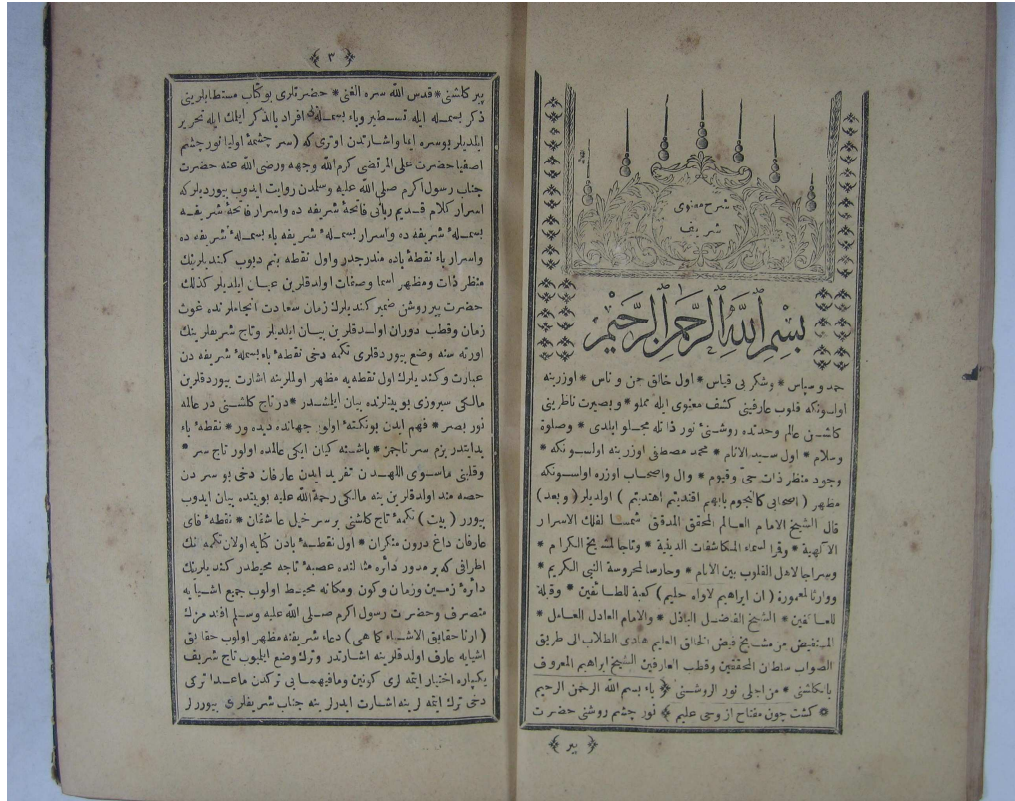 شرح معنوی
شریف
بسم الله الرحمن الرحیم
حمد و سپاس * وشکر بی قیاس * اول خالق جن و ناس * اوزرینه
اولسونکه قلوب عارفینی کشف معنوی ایله مملو * وبصیرت ناظرینی
کاشن عالم وحدتده روشنیٔ نور ذاتله مجلو ایلدی * وصلوة
وسلام * اول سید الانام * محمد مصطفی اوزرینه اولسونکه *
وجود منظر ذات حیّ وقیوم * وال واصحاب اوزره اولسونکه
مظهر ( اصحابی کالنجوم بایهم اقتدیتم اهتدیتم ) اولدیلر ( وبعد )
قال الشیخ الامام العالم المحقق المدقق شمسا لفلك الاسرار
الآلهیة * وقمرا لسماء المکاشفات الدینیة * وتاجا لمشایخ الکرام *
وسراجا لاهل القلوب بین الانام * وحارسا لمحروسة النبی الکریم *
ووارثا لمعمورة ( ان ابراهیم لاواه حلیم ) کعبة للطائفین * وقبلة
للعاکفین * الشیخ الفاضل الباذل * والامام العادل العامل *
المستفیض من مشایخ فیض الخالق العلیم هادی الطلاب الی طریق
الصواب سلطان المحققین وقطب العارفین الشیخ ابراهیم المعروف
بالکلشنی * من اجلی نور الروشنی ﴿ باء بسم الله الرحمن الرحیم
* کشت چون مفتاح از وحی علیم ﴾ نور چشم روشنی حضرت
﴿ پیر ﴾
﴿ ٣ ﴾
پیر کلشنی * قدس الله سره الغنی * حضرتلری بو کتاب مستطابلرینی
ذکر بسمله ایله تسطیر وباء بسمله نی افراد بالذکر ایلمك ایله تحریر
ایلدیلر بوسره ایما واشارتدن اوتری که ( سر چشمۀ اولیا نور چشم
اصفیا حضرت علی المرتضی کرم الله وجهه ورضی الله عنه حضرت
جناب رسول اکرم صلی الله علیه وسلمدن روایت ایدوب بیوردیلرکه
اسرار کلام قدیم ربانی فاتحۀ شریفه ده واسرار فاتحۀ شریفه
بسملۀ شریفه ده واسرار بسملۀ شریفه باء بسملۀ شریفه ده
واسرار باء نقطۀ باده مندرجدر واول نقطه بنم دیوب کندیلرینك
منظر ذات ومظهر اسما وصفات اولدقلرین عیان ایلدیلر کذلك
حضرت پیر روشن ضمیر کندیلرك زمان سعادت انجاملرنده غوث
زمان وقطب دوران اولدقلرین بیان ایلدیلر وتاج شریفلرینك
اورته سنه وضع بیوردقلری تکمه دخی نقطۀ باء بسملۀ شریفه دن
عبارت وکندیلرك اول نقطه یه مظهر اولملرینه اشارت بیوردقلرین
مالکی سیروزی بو بیتلرنده بیان ایلمشدر * در تاج کلشنی در عالمه
نور بصر * فهم ایدن بونکته اولور جهانده دیده ور * نقطۀ باء
یدایتدر بزم سر تاجمز * باشنه کیان ایکی عالمده اولور تاج سر *
وقلبنی ماسوی اللهدن تفرید ایدن عارفان دخی بو سردن
حصه مند اولدقلرین ینه مالکی رحمة الله علیه بو بیتده بیان ایدوب
بیورر ( بیت ) تکمۀ تاج کلشنی بر سر خیل عاشقان * نقطۀ فای
عارفان داغ درون منکران * اول نقطۀ بادن کنایه اولان تکمه نك
اطرافی که بر مدور دائره مثالنده عصبۀ تاجه محیطدر کندیلرینك
دائرۀ زمین وزمان وکون ومکانه محیط اولوب جمیع اشیایه
متصرف وحضرت رسول اکرم صلی الله علیه وسلم افندمزك
( ارنا حقایق الاشیاء کما هی ) دعاء شریفنه مظهر اولوب حقایق
اشیایه عارف اولدقلرینه اشارتدر وترك وضع ایلیوب تاج شریف
یکپاره اختیار ایتمه لری کونین ومافیهمایی ترکدن ماعدا ترکی
دخی ترك ایتمه لرینه اشارت ایدرلر ینه جناب شریفلری بیوررلر